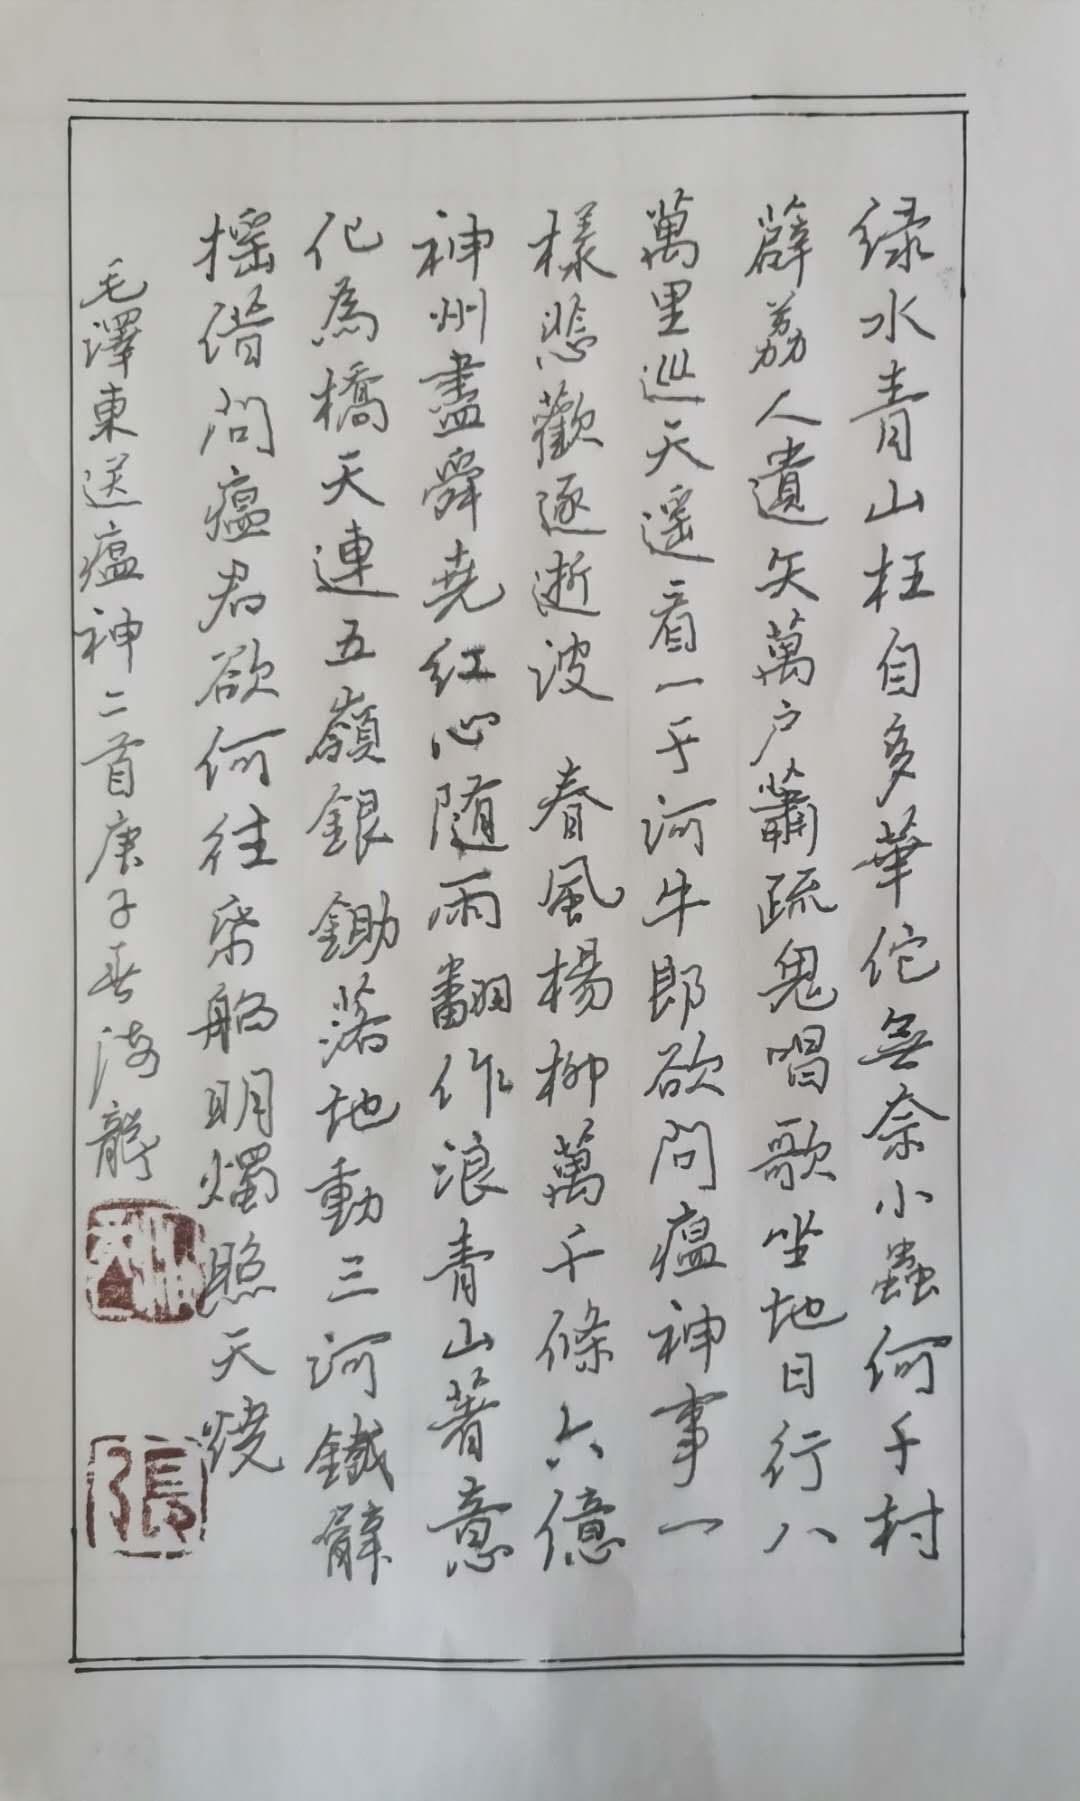 绿水青山枉自多華佗無奈小蟲何千村
薜荔人遺矢萬户蕭疏鬼唱歌坐地日行八
萬里巡天遥看一千河牛郎欲問瘟神事一
樣悲歡逐逝波 春風楊柳萬千條六億
神州盡舜堯紅心随雨翻作浪青山著意
化為橋天連五嶺銀鋤落地動三河鐵臂
摇借問瘟君欲何往帋船明燭照天燒
毛澤東送瘟神二首庚子春海龍
張